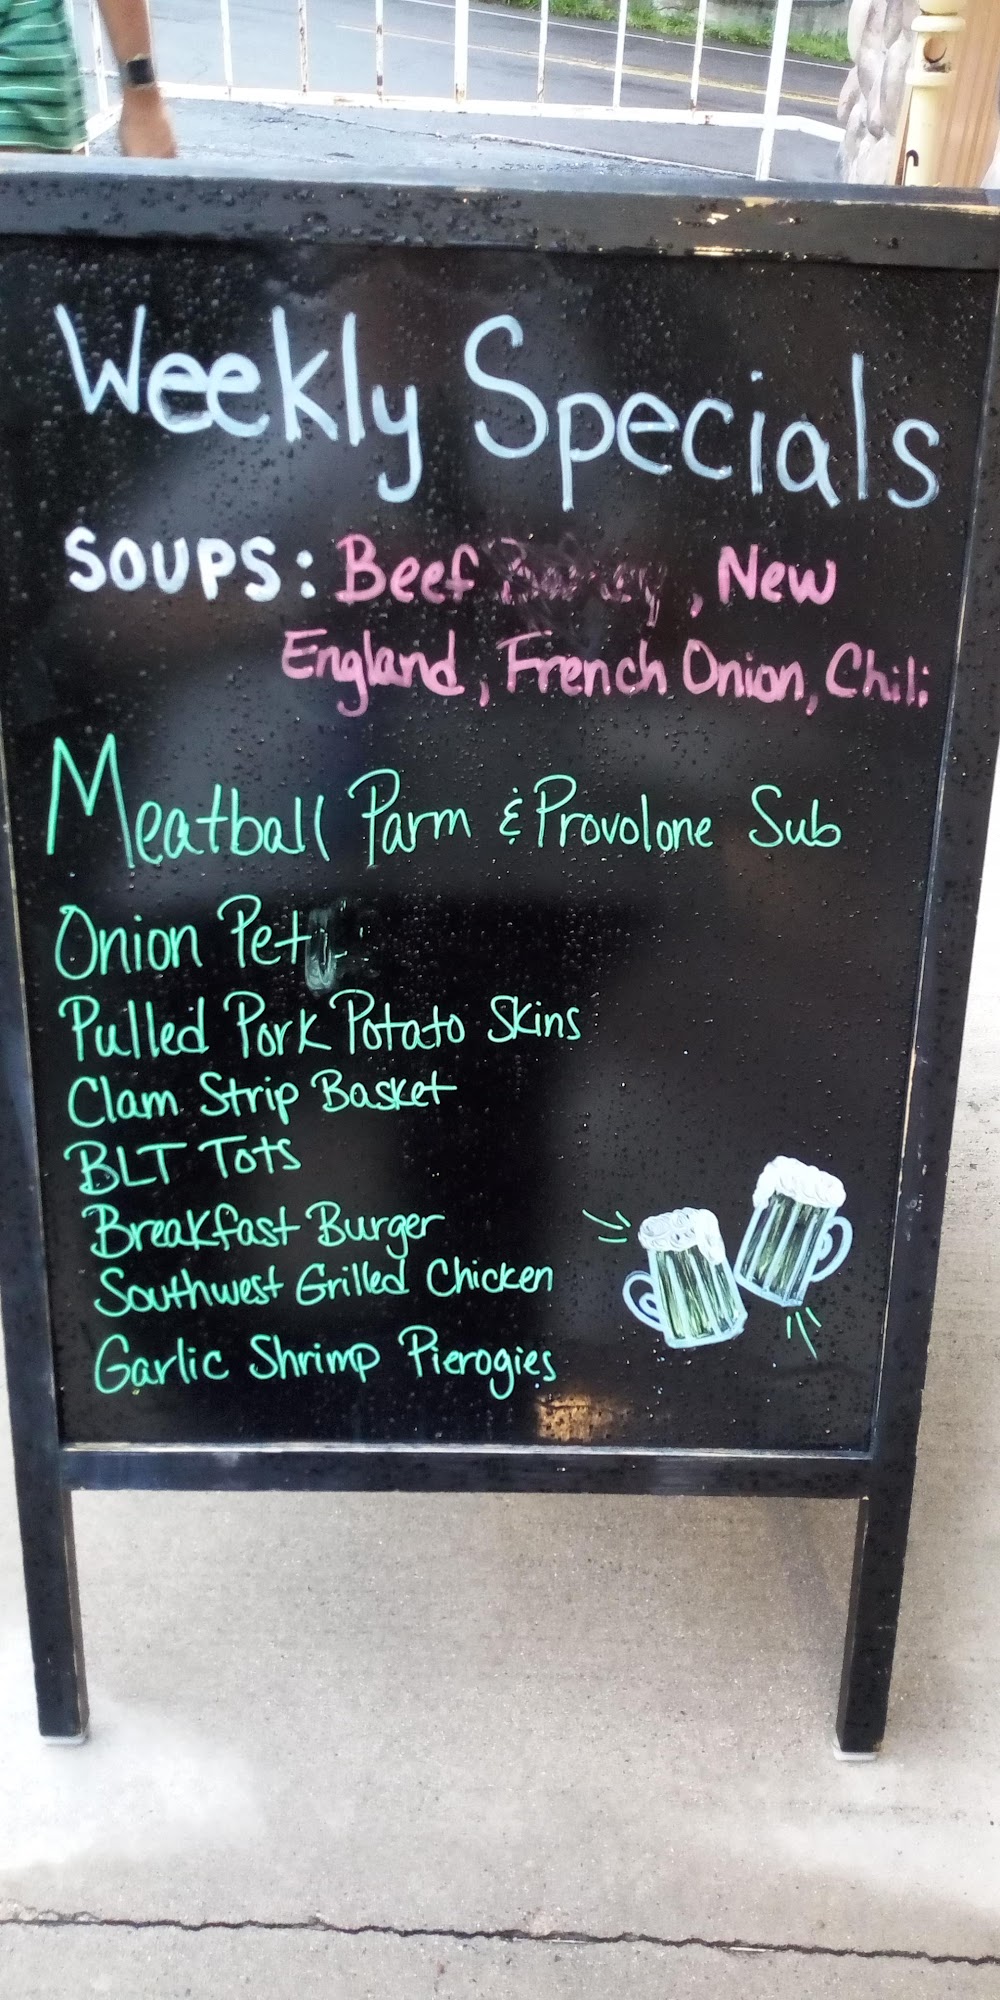 Weekly Specials
SOUPS: Beef , New
England, French Onion, Chili
Meatball Parm & Provolone Sub
Onion Pet
Pulled Pork Potato Skins
Clam Strip Basket
BLT Tots
Breakfast Burger
Southwest Grilled Chicken
Garlic Shrimp Pierogies